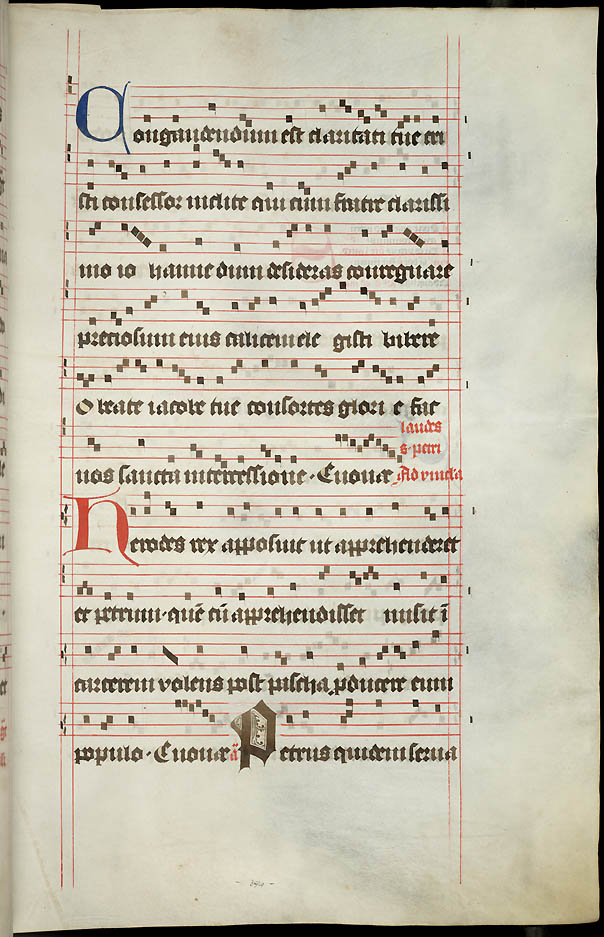 Congaudendum est claritati tue cri
sti confessor inclite qui cum fratre clarissi
mo io hanne dum desideras conregnare
preciosum eius calicem ele gisti bibere
O beate iacobe tue consortes glori e fac
laudes
s. petri
nos sancta intercessione. Euouae Ad vincla
Herodes rex apposuit ut apprehenderet
et petrum. quē cū apprehendisset misit ī
carcerem volens post pascha producere eum
populo. Euouae a Petrus quidem serua